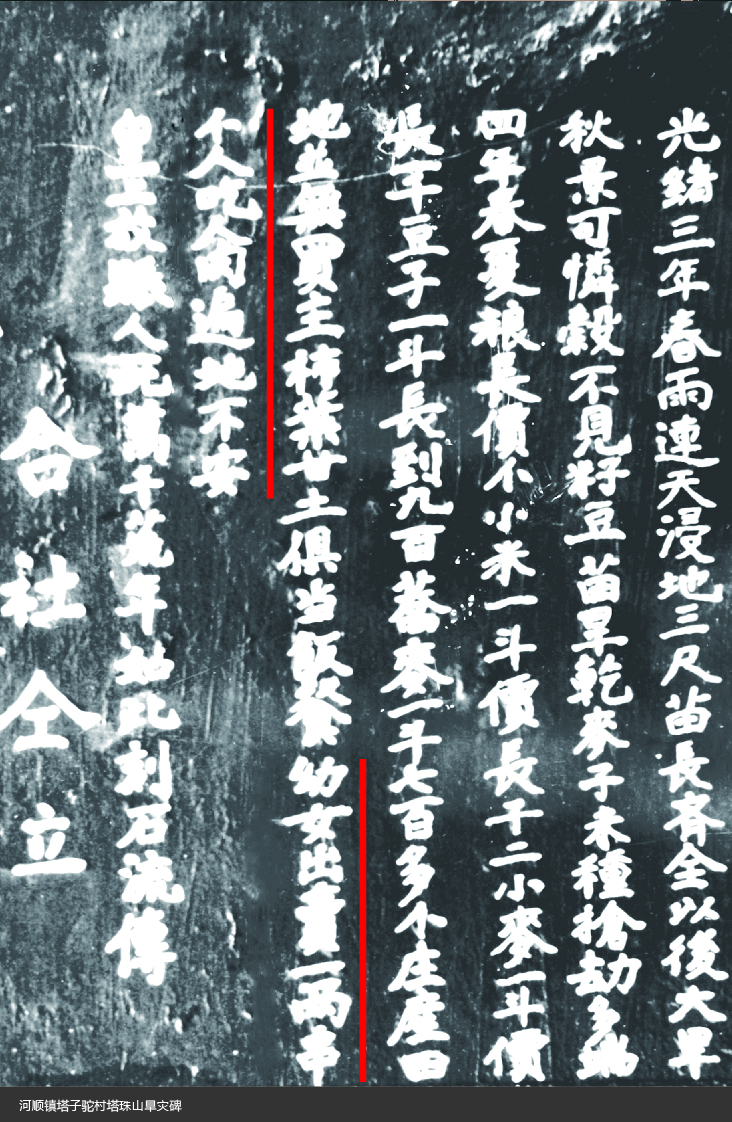 光緒三年春雨連天浸地三尺苗長齊全以後大旱
秋景可憐穀不見籽豆苗旱乾麥子未種搶劫多端
四年春夏粮長價不小米一斗價長千二小麥一斗價
長千豆子一斗長到九百蕎麥一千七百多个庄產田
地並無買主柿葉甘土俱当飯餐幼女出賣一兩串
个人吃人肉遍地不安
皇王放賑人死萬千荒年如此刻石流傳
合社仝立
河顺镇塔子驼村塔珠山旱灾碑